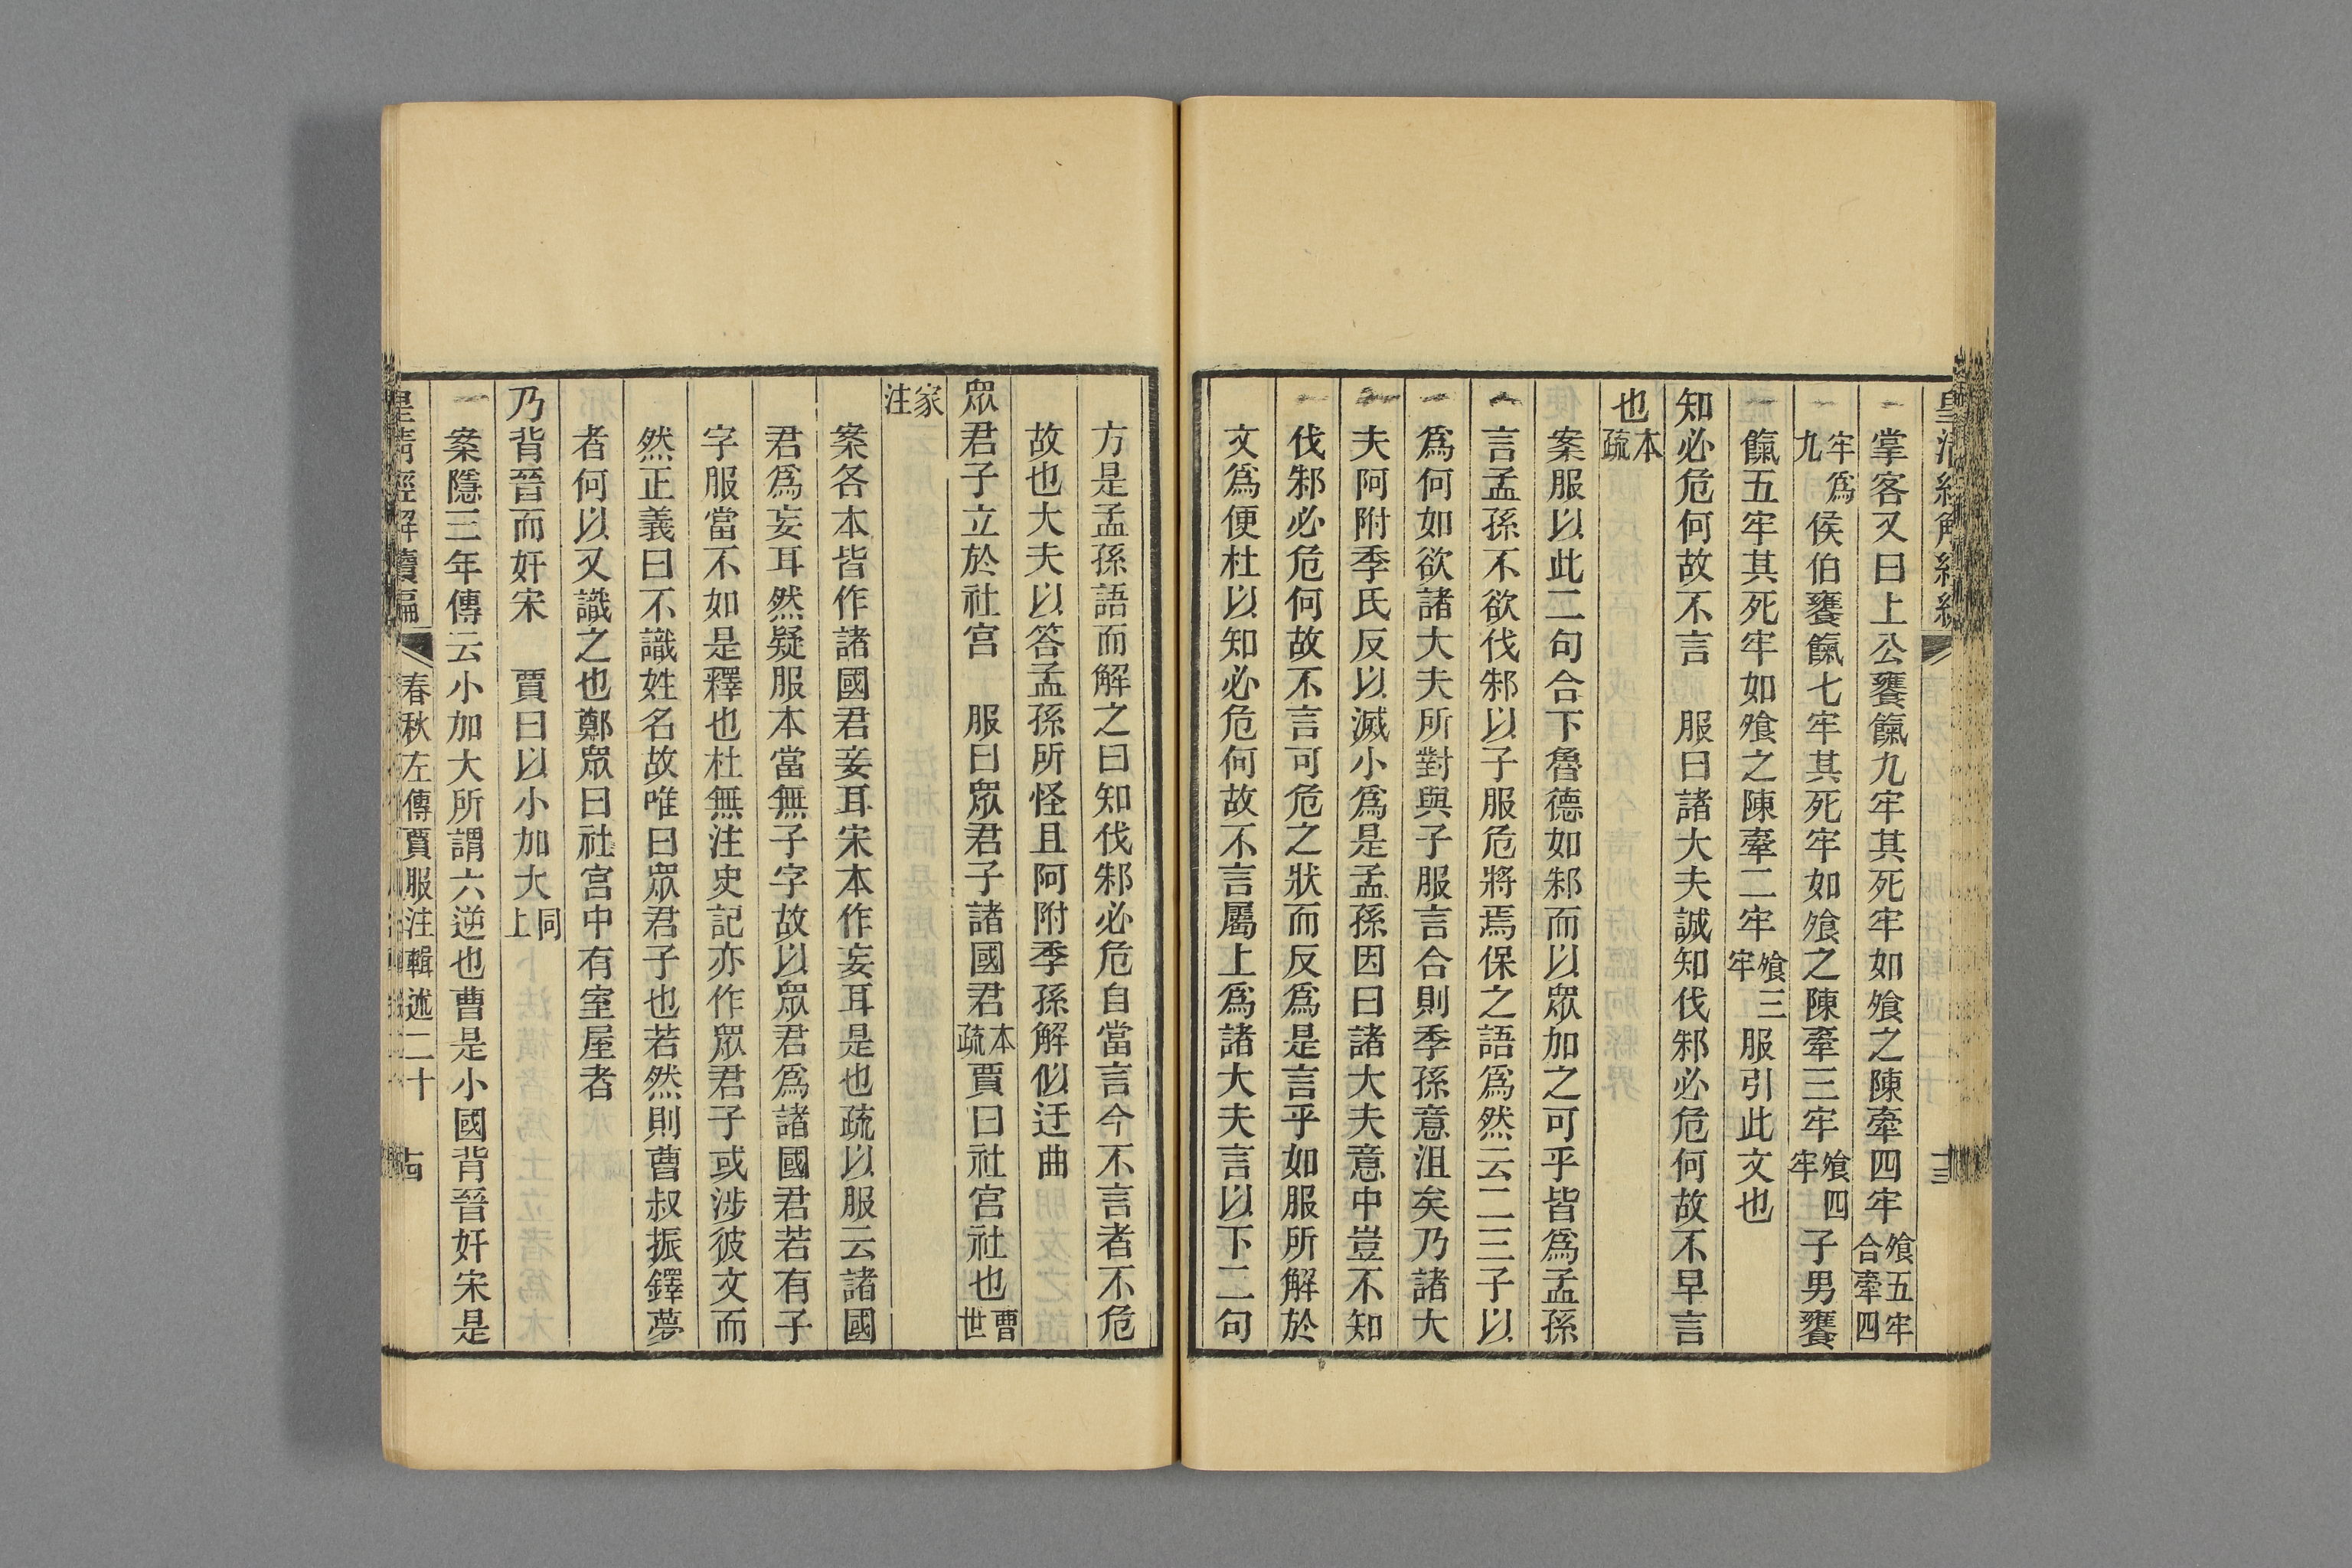 掌客又曰上公饔餼九牢其死牢如飧之陳牽四牢飧五牢合牽四
牢爲九侯伯饔餼七牢其死牢如飧之陳牽三牢飧四牢子男饔
餼五牢其死牢如飧之陳牽二牢飧三牢服引此文也
知必危何故不言　服曰諸大夫誠知伐邾必危何故不早言
也本疏
案服以此二句合下魯德如邾而以眾加之可乎皆爲孟孫
言孟孫不欲伐邾以子服危將焉保之語爲然云二三子以
爲何如欲諸大夫所對與子服言合則季孫意沮矣乃諸大
夫阿附季氏反以滅小爲是孟孫因曰諸大夫意中豈不知
伐邾必危何故不言可危之狀而反爲是言乎如服所解於
文爲便杜以知必危何故不言屬上爲諸大夫言以下二句
方是孟孫語而解之曰知伐邾必危自當言今不言者不危
故也大夫以答孟孫所怪且阿附季孫解似迂曲
眾君子立於社宮　服曰眾君子諸國君本疏賈曰社宮社也曹世
家注
案各本皆作諸國君妾耳宋本作妄耳是也疏以服云諸國
君爲妄耳然疑服本當無子字故以眾君爲諸國君若有子
字服當不如是釋也杜無注史記亦作眾君子或涉彼文而
然正義曰不識姓名故唯曰眾君子也若然則曹叔振鐸夢
者何以又識之也鄭眾曰社宮中有室屋者
乃背晉而奸宋　賈曰以小加大同上
案隱三年傳云小加大所謂六逆也曹是小國背晉奸宋是
皇清經解續編　春秋左傳賈服注輯述二十　十四